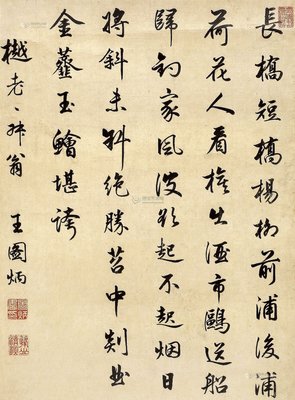 長橋短橋楊柳前浦後浦
荷花人看旗出酒市鷗送船
歸釣家風波欲起不起烟日
將斜未斜絕勝苕中剡曲
金虀玉鱠堪誇
樾老年翁 王國炳